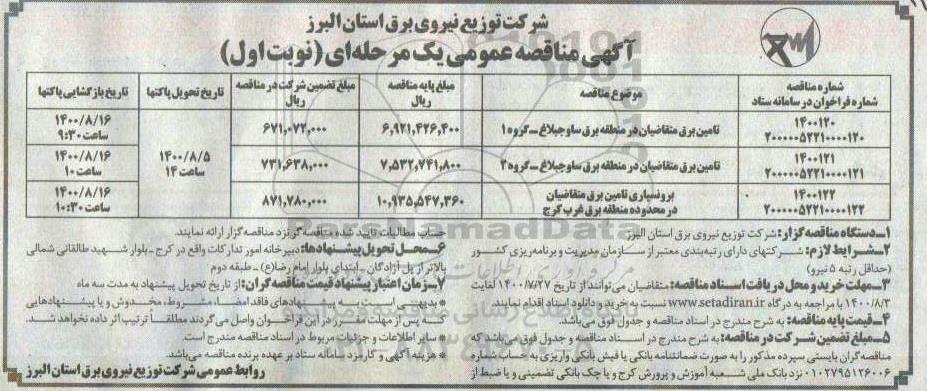 شرکت توزیع نیروی برق استان البرز
آگهی مناقصه عمومی یک مرحله‌ای (نوبت اول)
شماره مناقصه
شماره فراخوان در سامانه ستاد
موضوع مناقصه
مبلغ پایه مناقصه
ریال
مبلغ تضمین شرکت در مناقصه
ریال
تاریخ تحویل پاکتها
تاریخ بازگشایی پاکتها
۱۴۰۰۱۲۰
۲۰۰۰۰۰۵۲۲۱۰۰۰۰۱۲۰
تامین برق متقاضیان در منطقه برق ساوجبلاغ ـ گروه ۱
۶,۹۲۱,۴۲۶,۴۰۰
۶۷۱,۰۷۲,۰۰۰
۱۴۰۰/۸/۵
ساعت ۱۴
۱۴۰۰/۸/۱۶
ساعت ۹:۳۰
۱۴۰۰۱۲۱
۲۰۰۰۰۰۵۲۲۱۰۰۰۰۱۲۱
تامین برق متقاضیان در منطقه برق ساوجبلاغ ـ گروه ۲
۷,۵۳۲,۷۴۱,۸۰۰
۷۳۱,۶۳۸,۰۰۰
۱۴۰۰/۸/۱۶
ساعت ۱۰
۱۴۰۰۱۲۲
۲۰۰۰۰۰۵۲۲۱۰۰۰۰۱۲۲
برونسپاری تامین برق متقاضیان
در محدوده منطقه برق غرب کرج
۱۰,۹۳۵,۵۴۷,۳۶۰
۸۷۱,۷۸۰,۰۰۰
۱۴۰۰/۸/۱۶
ساعت ۱۰:۳۰
۱ـ دستگاه مناقصه گزار: شرکت توزیع نیروی برق استان البرز
۲ـ شرایط لازم: شرکتهای دارای رتبه‌بندی معتبر از سازمان مدیریت و برنامه‌ریزی کشور
(حداقل رتبه ۵ نیرو)
۳ـ مهلت خرید و محل دریافت اسناد مناقصه: متقاضیان می‌توانند از تاریخ ۱۴۰۰/۷/۲۷ لغایت
۱۴۰۰/۸/۳ با مراجعه به درگاه www.setadiran.ir نسبت به خرید و دانلود اسناد اقدام نمایند.
۴ـ قیمت پایه مناقصه: به شرح مندرج در اسناد مناقصه و جدول فوق می‌باشد.
۵ـ مبلغ تضمین شرکت در مناقصه: به شرح مندرج در اسناد مناقصه و جدول فوق می‌باشد که
مناقصه گران بایستی سپرده مذکور را به صورت ضمانتنامه بانکی یا فیش بانکی واریزی به حساب شماره
۰۱۰۲۷۹۵۱۲۶۰۰۶ نزد بانک ملی شعبه آموزش و پرورش کرج و یا چک بانکی تضمینی و یا ضبط از
حساب مطالبات تایید شده مناقصه گر نزد مناقصه گزار ارائه نمایند.
۶ـ محل تحویل پیشنهادها: دبیرخانه امور تدارکات واقع در کرج ـ بلوار شهید طالقانی شمالی
بالاتر از پل آزادگان ـ ابتدای بلوار امام رضا(ع) ـ طبقه دوم
۷ـ زمان اعتبار پیشنهاد قیمت مناقصه گران: از تاریخ تحویل پیشنهاد به مدت سه ماه
* بدیهی است به پیشنهادهای فاقد امضاء، مشروط، مخدوش و یا پیشنهادهایی
که پس از مهلت مقرر در این فراخوان واصل می‌گردند مطلقاً ترتیب اثر داده نخواهد شد.
* سایر اطلاعات و جزئیات مربوط در اسناد مناقصه مندرج است.
* هزینه آگهی و کارمزد سامانه ستاد بر عهده برنده مناقصه می‌باشد.
روابط عمومی شرکت توزیع نیروی برق استان البرز